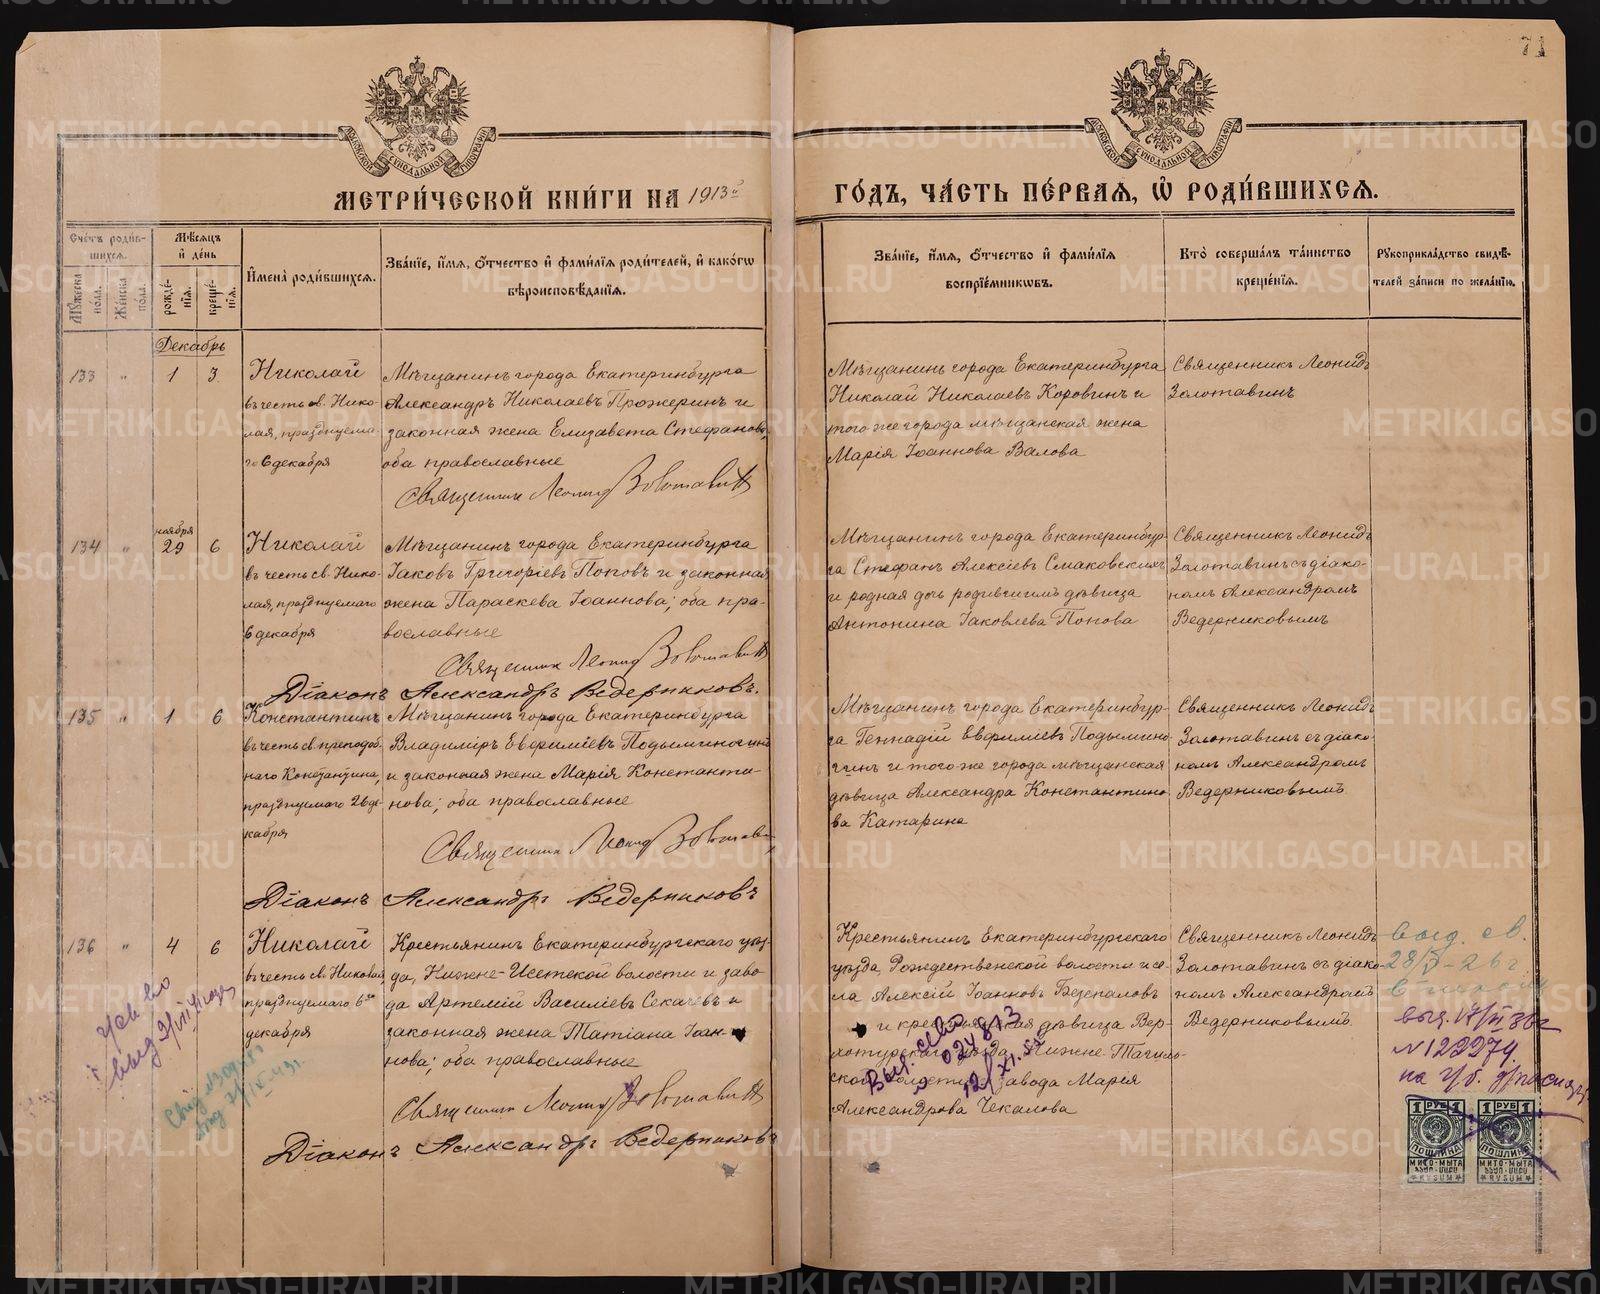 71
МОСКОВСКОЙ СѴНОДАЛЬНОЙ ТИПОГРАФІИ
МОСКОВСКОЙ СѴНОДАЛЬНОЙ ТИПОГРАФІИ
МЕТРИ́ЧЕСКОЙ КНИ́ГИ НА 1913й
ГО́ДЪ, ЧА́СТЬ ПЕ́РВАЯ, Ѡ҆ РОДИ́ВШИХСЯ.
Сче́тъ роди́вшихся.
Мꙋ́жеска пола.
Же́нска по́ла.
Мѣ́сяцъ и҆ де́нь
рожде́нїя.
креще́нїя.
И҆мена̀ роди́вшихся.
Зва́нїе, и҆́мя, ѻ҆́тчество и҆ фами́лїя роди́телей, и҆ како́гѡ
вѣроисповѣ́данїя.
Зва́нїе, и҆́мя, ѻ҆́тчество и҆ фами́лїя
воспрїе́мникѡвъ.
Кто̀ соверша́лъ та́инство
креще́нїя.
Рꙋкоприкла́дство свидѣ́телей за́писи по жела́нїю.
Декабрь
133 " 1 3
Николай
въ честь св. Нико-
лая, празднуема-
го 6 декабря
Мѣщанинъ города Екатеринбурга
Александръ Николаевъ Прожеринъ и
законная жена Елизавета Стефанова,
оба православные
Священник Леонид Золотавин
Мѣщанинъ города Екатеринбурга
Николай Николаевъ Коровинъ и
того же города мѣщанская жена
Марія Іоаннова Валова
Священникъ Леонидъ
Золотавинъ
134 " ноября 29 6
Николай
въ честь св. Нико-
лая, празднуемаго
6 декабря
Мѣщанинъ города Екатеринбурга
Іаковъ Григоріевъ Поповъ и законная
жена Параскева Іоаннова; оба пра-
вославные
Священник Леонид Золотавин
Діаконъ Александръ Ведерниковъ.
Мѣщанинъ города Екатеринбур-
га Стефанъ Алексіевъ Смаковскихъ
и родная дочь родившимъ дѣвица
Антонина Іаковлева Попова
Священникъ Леонидъ
Золотавинъ съ діако-
номъ Александромъ
Ведерниковымъ
135 " 1 6
Константинъ
въ честь св. преподоб-
наго Константина,
празднуемаго 26 де-
кабря
Мѣщанинъ города Екатеринбурга
Владиміръ Евфиміевъ Подыминогинъ
и законная жена Марія Константи-
нова; оба православные
Священник Леонид Золотавин
Діаконъ Александръ Ведерниковъ
Мѣщанинъ города Екатеринбур-
га Геннадій Евфиміевъ Подымино-
гинъ и того же города мѣщанская
дѣвица Александра Константино-
ва Катарина
Священникъ Леонидъ
Золотавинъ съ діако-
номъ Александромъ
Ведерниковымъ
136 " 4 6
Николай
въ честь св. Николая,
празднуемаго 6го
декабря
Крестьянинъ Екатеринбургскаго уѣз-
да, Нижне-Исетской волости и заво-
да Артемій Василіевъ Секачевъ и
законная жена Татіана Іоан-
нова; оба православные
Священник Леонид Золотавин
Діаконъ Александръ Ведерниковъ
Крестьянинъ Екатеринбургскаго
уѣзда, Рождественской волости и се-
ла Алексій Іоанновъ Безепаловъ
и крестьянская дѣвица Вер-
хотурскаго уѣзда Нижне-Тагиль-
ской волости и завода Марія
Александрова Чекалова
Священникъ Леонидъ
Золотавинъ съ діако-
номъ Александромъ
Ведерниковымъ
выд. св.
№ 122274
1 РУБ 1
ПОШЛИНА
МИТО-МЫТА
RYSUM
1 РУБ 1
ПОШЛИНА
МИТО-МЫТА
RYSUM
METRIKI.GASO-URAL.RU